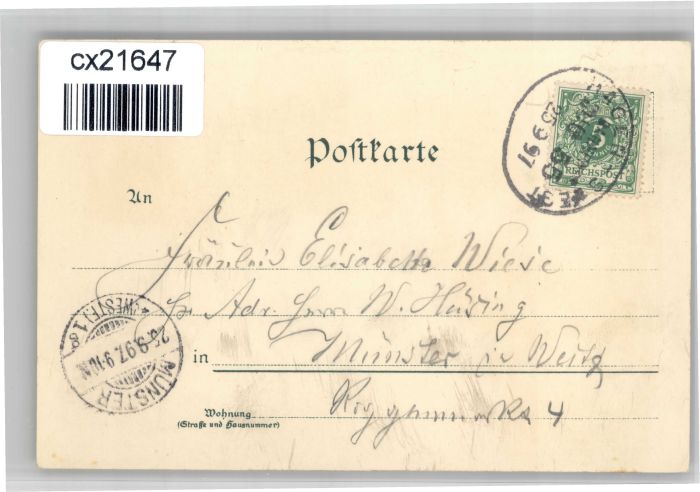 cx21647
5
REICHSPOST
25 9 97
Postkarte
An
Fräulein Elisabeth Wiese
pr Adr. Herrn W. Hüsing
in Münster in Westf
Wohnung
(Straße und Hausnummer)
4
MÜNSTER (WESTF.) 1
26.9.97. 9-10